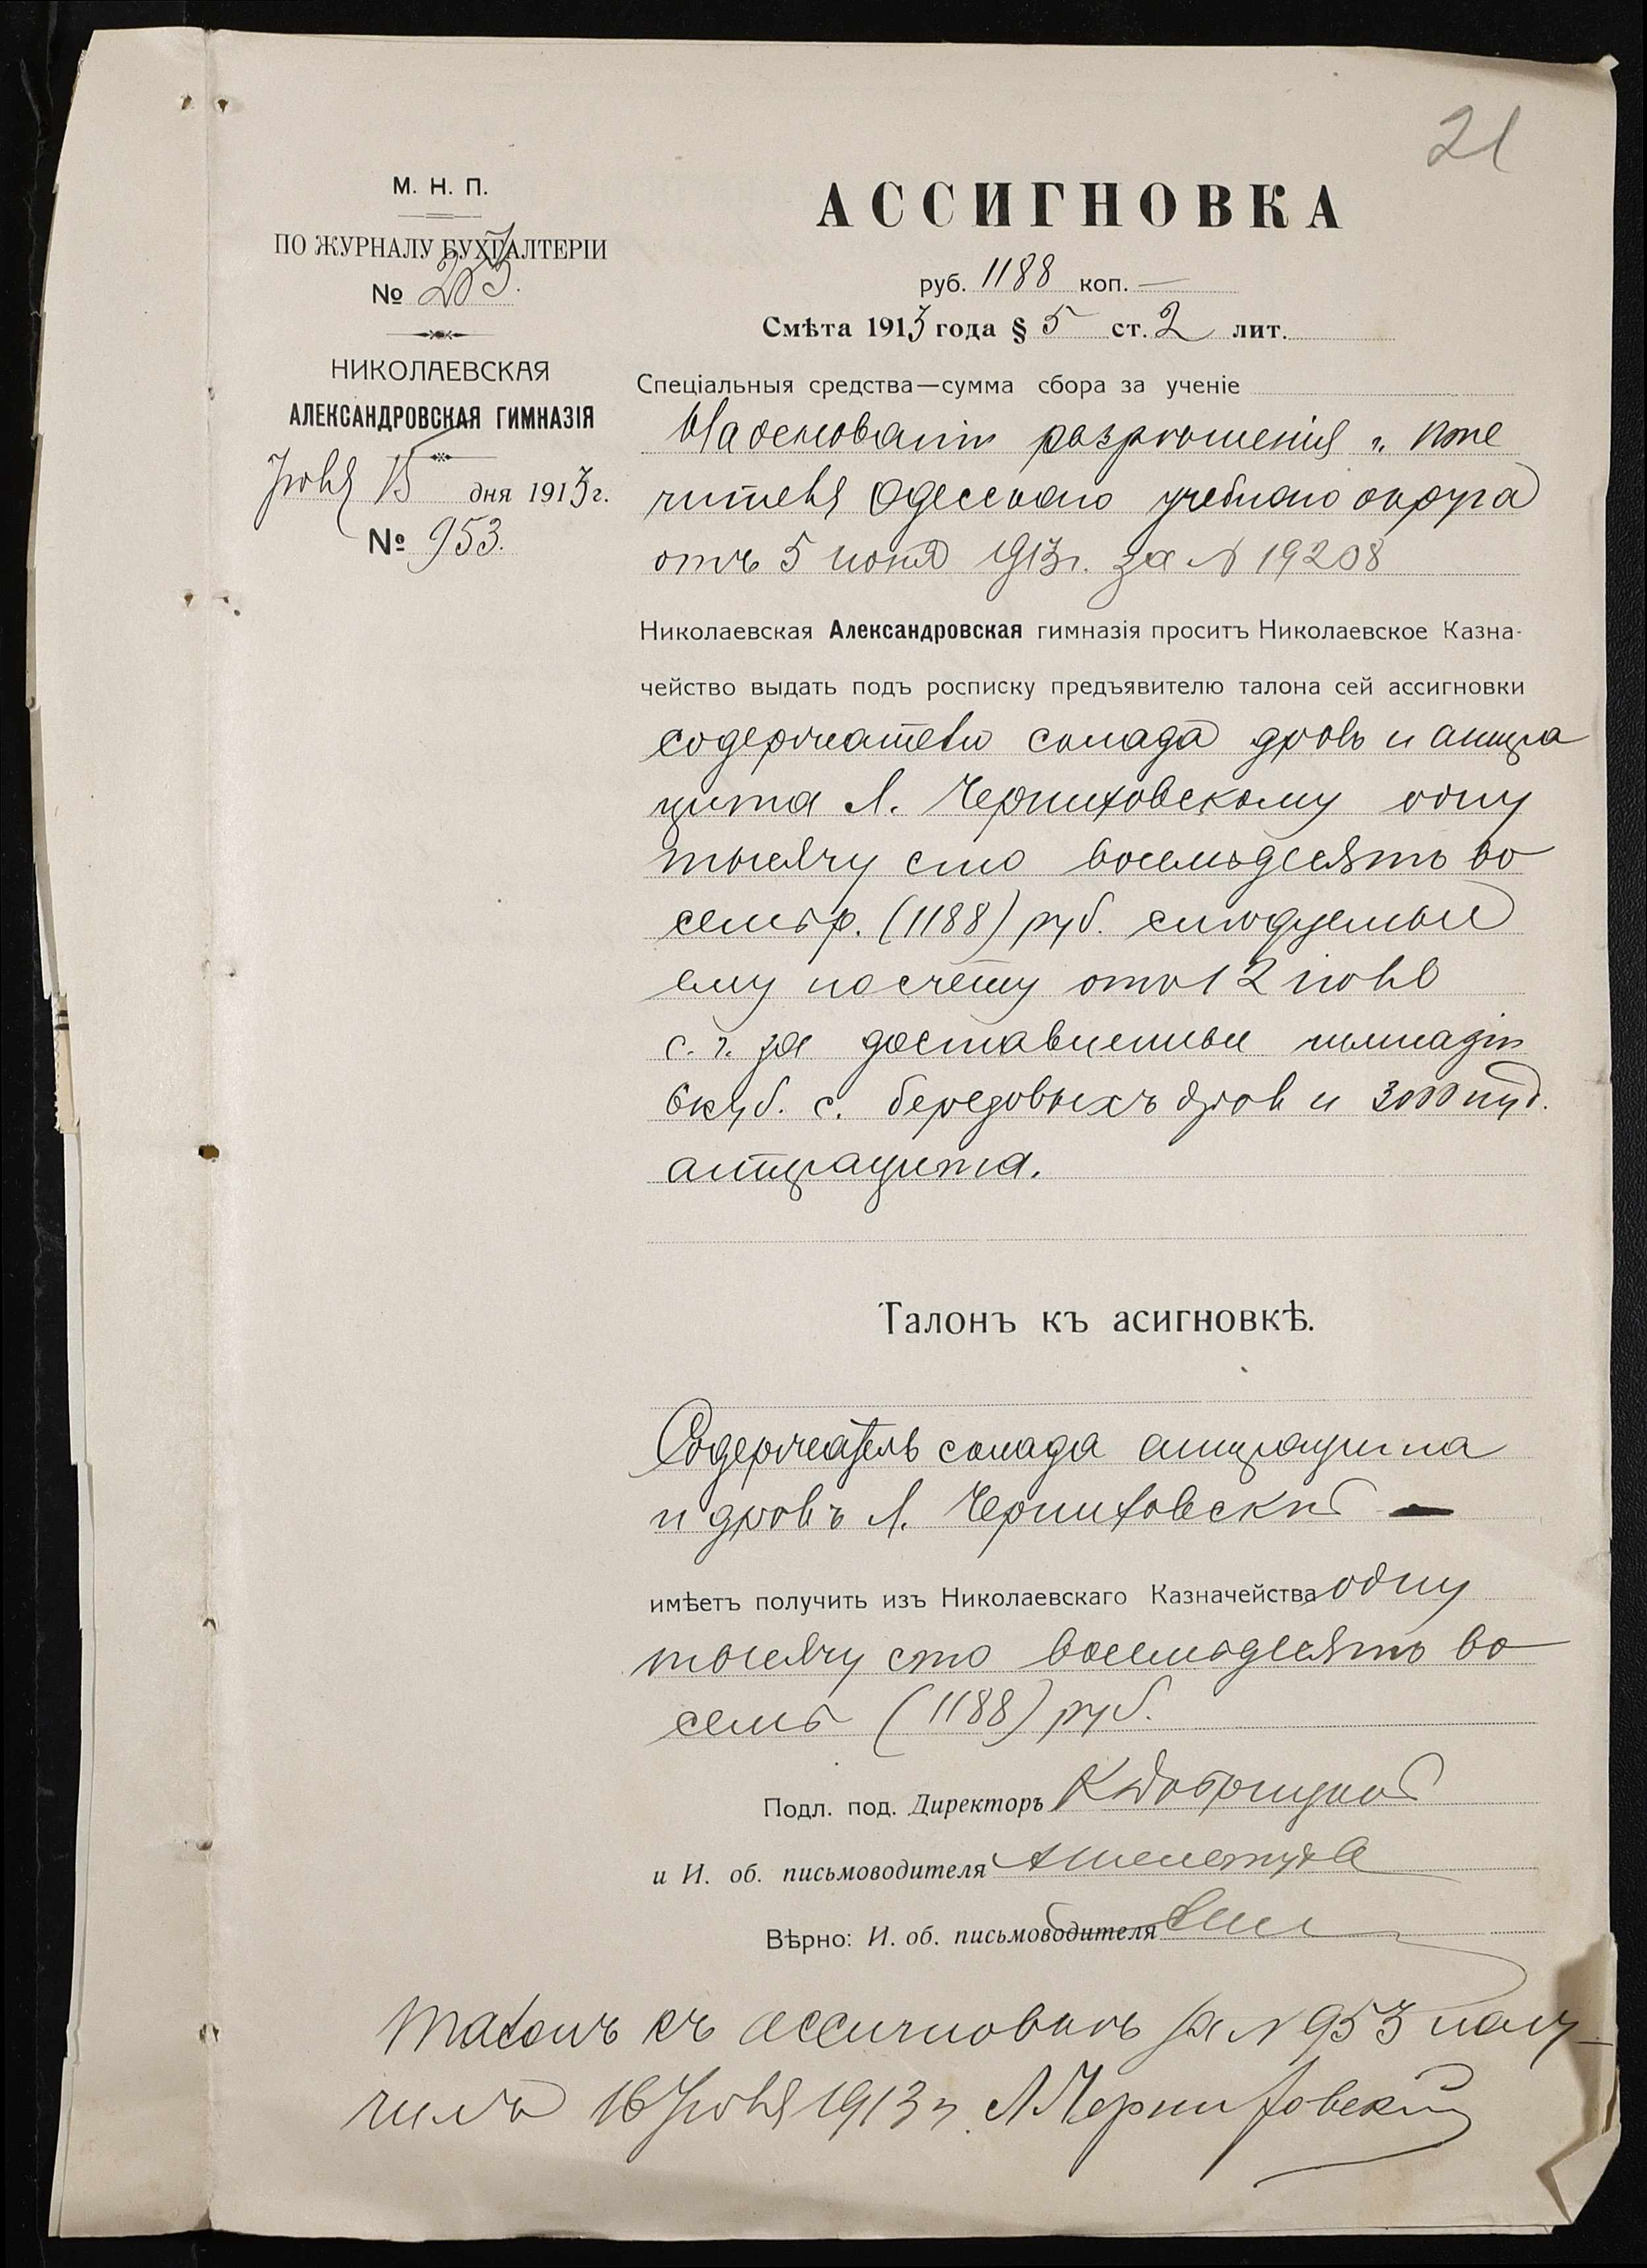 21
М. Н. П.
ПО ЖУРНАЛУ БУХГАЛТЕРІИ
№
НИКОЛАЕВСКАЯ
АЛЕКСАНДРОВСКАЯ ГИМНАЗІЯ
Іюля 15 дня 1913 г.
№ 953.
АССИГНОВКА
руб. 1188 коп. —
Смѣта 1913 года § 5 ст. 2 лит.
Спеціальныя средства—сумма сбора за ученіе
На основаніи разрѣшенія г. Попе
чителя Одесскаго учебнаго округа
отъ 5 іюля 1913г. за № 19208
Николаевская Александровская гимназія проситъ Николаевское Казна-
чейство выдать подъ росписку предъявителю талона сей ассигновки
содержателю склада дровъ и антра
цита Л. Черниховскому одну
тысячу сто восемьдесятъ во
семь р. (1188) руб. слѣдуемые
ему по счету отъ 12 іюля
с. г. за доставленные гимназіи
6 куб. с. дровъ и 3000 пуд.
антрацита.
Талонъ къ асигновкѣ.
Содержатель склада антрацита
и дровъ Л. Черниховскій —
имѣетъ получить изъ Николаевскаго Казначейства одну
тысячу сто восемьдесятъ во
семь (1188) руб.
Подл. под. Директоръ
и И. об. письмоводителя
Вѣрно: И. об. письмоводителя
Талонъ къ ассигновкѣ за № 953 полу-
чилъ 16 Іюля 1913 г. Л Черниховскій